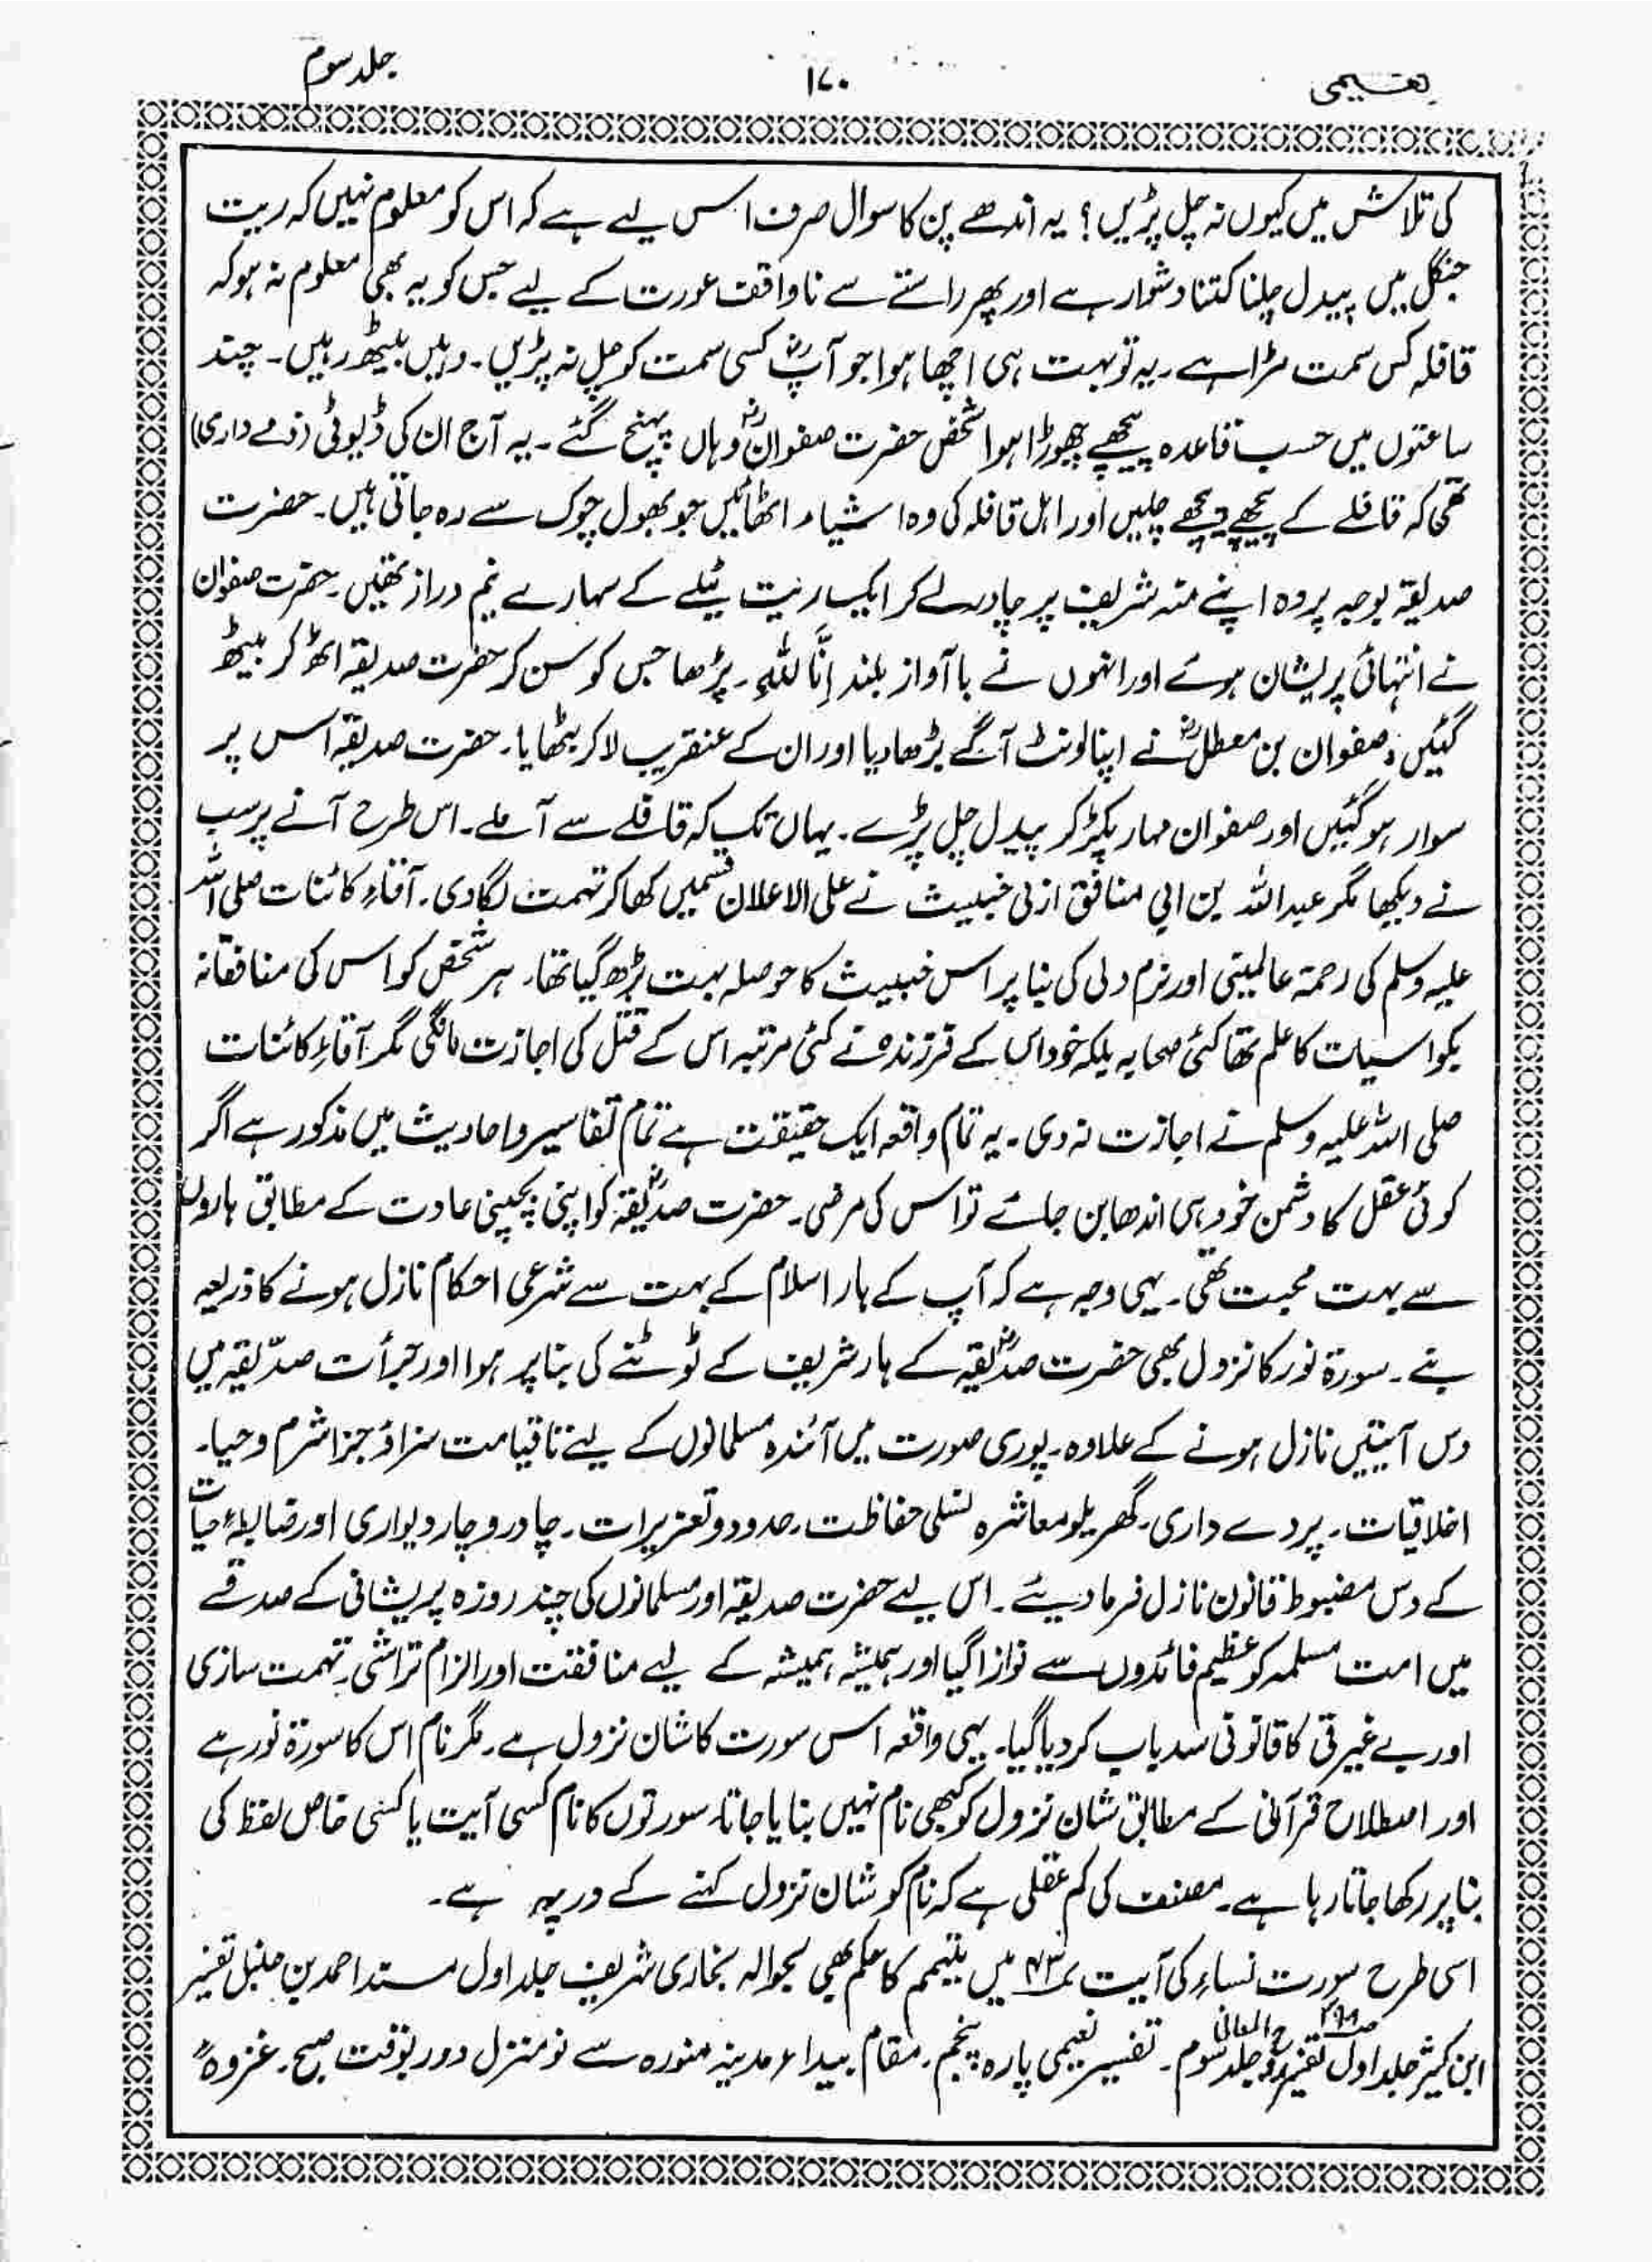 نعیمی ۱۷۰ جلد سوم
کی تلاش میں کیوں نہ چل پڑیں؟ یہ اندھے پن کا سوال صرف اس لیے ہے کہ اس کو معلوم نہیں کہ ریت
جنگل میں پیدل چلنا کتنا دشوار ہے اور پھر راستے سے ناواقف عورت کے لیے جس کو یہ بھی معلوم نہ ہو کہ
قافلہ کس سمت مڑا ہے۔ یہ تو بہت ہی اچھا ہوا جو آپؓ کسی سمت کو چل نہ پڑیں۔ وہیں بیٹھ رہیں۔ چند
ساعتوں میں حسب قاعدہ پیچھے چھوڑا ہوا شخص حضرت صفوانؓ وہاں پہنچ گئے۔ یہ آج ان کی ڈیوٹی (ذمے داری)
تھی کہ قافلے کے پیچھے پیچھے چلیں اور اہل قافلہ کی وہ اشیاء اٹھائیں جو بھول چوک سے رہ جاتی ہیں۔ حضرت
صدیقہ بوجہ پردہ اپنے منہ شریف پر چادر لے کر ایک ریت ٹیلے کے سہارے نیم دراز تھیں۔ حضرت صفوان
نے انتہائی پریشان ہوئے اور انہوں نے باآواز بلند اِنَّا لِلّٰہِ۔ پڑھا جس کو سن کر حضرت صدیقہ اٹھ کر بیٹھ
گئیں، صفوان بن معطلؓ نے اپنا اونٹ آگے بڑھا دیا اور ان کے عنقریب لا کر بٹھایا۔ حضرت صدیقہ اس پر
سوار ہو گئیں اور صفوان مہار پکڑ کر پیدل چل پڑے۔ یہاں تک کہ قافلے سے آ ملے۔ اس طرح آنے پر سب
نے دیکھا مگر عبداللہ بن ابی منافق ازلی خبیث نے علی الاعلان قسمیں کھا کر تہمت لگا دی۔ آقاءِ کائنات صلی اللہ
علیہ وسلم کی رحمۃ عالمینی اور نرم دلی کی بنا پر اس خبیث کا حوصلہ بہت بڑھ گیا تھا۔ ہر شخص کو اس کی منافقانہ
بکواسیات کا علم تھا کئی صحابہ بلکہ خود اس کے فرزند نے کئی مرتبہ اس کے قتل کی اجازت مانگی مگر آقاءِ کائنات
صلی اللہ علیہ وسلم نے اجازت نہ دی۔ یہ تمام واقعہ ایک حقیقت ہے تمام تفاسیر و احادیث میں مذکور ہے اگر
کوئی عقل کا دشمن خود ہی اندھا بن جائے تو اس کی مرضی۔ حضرت صدیقہؓ کو اپنی بچپنی عادت کے مطابق ہاروں
سے بہت محبت تھی۔ یہی وجہ ہے کہ آپ کے ہار اسلام کے بہت سے شرعی احکام نازل ہونے کا ذریعہ
بنے۔ سورۃ نور کا نزول بھی حضرت صدیقہؓ کے ہار شریف کے ٹوٹنے کی بنا پر ہوا اور برأت صدّیقہ میں
دس آیتیں نازل ہونے کے علاوہ۔ پوری صورت میں آئندہ مسلمانوں کے لیے تاقیامت سزا و جزا شرم و حیا۔
اخلاقیات۔ پردے داری۔ گھریلو معاشرہ نسلی حفاظت۔ حدود و تعزیرات۔ چادر و چار دیواری اور ضابطۂ حیات
کے دس مضبوط قانون نازل فرما دیئے۔ اس لیے حضرت صدیقہ اور مسلمانوں کی چند روزہ پریشانی کے صدقے
میں امت مسلمہ کو عظیم فائدوں سے نوازا گیا اور ہمیشہ ہمیشہ کے لیے منافقت اور الزام تراشی۔ تہمت سازی
اور بے غیرتی کا قانونی سدباب کر دیا گیا۔ یہی واقعہ اس سورت کا شان نزول ہے۔ مگر نام اس کا سورۃ نور ہے
اور اصطلاح قرآنی کے مطابق شان نزول کو کبھی نام نہیں بنایا جاتا۔ سورتوں کا نام کسی آیت یا کسی خاص لفظ کی
بنا پر رکھا جاتا رہا ہے۔ مصنف کی کم عقلی ہے کہ نام کو شان نزول کہنے کے درپہ ہے۔
اسی طرح سورت نساء کی آیت ۴۳ میں تیمم کا حکم بھی بحوالہ بخاری شریف جلد اول مسند احمد بن حنبل تفسیر
ابن کثیر جلد اول تفسیر روح المعانی جلد سوم۔ تفسیر نعیمی پارہ پنجم۔ مقام بیداء مدینہ منورہ سے نو منزل دور بوقت صبح۔ غزوہ